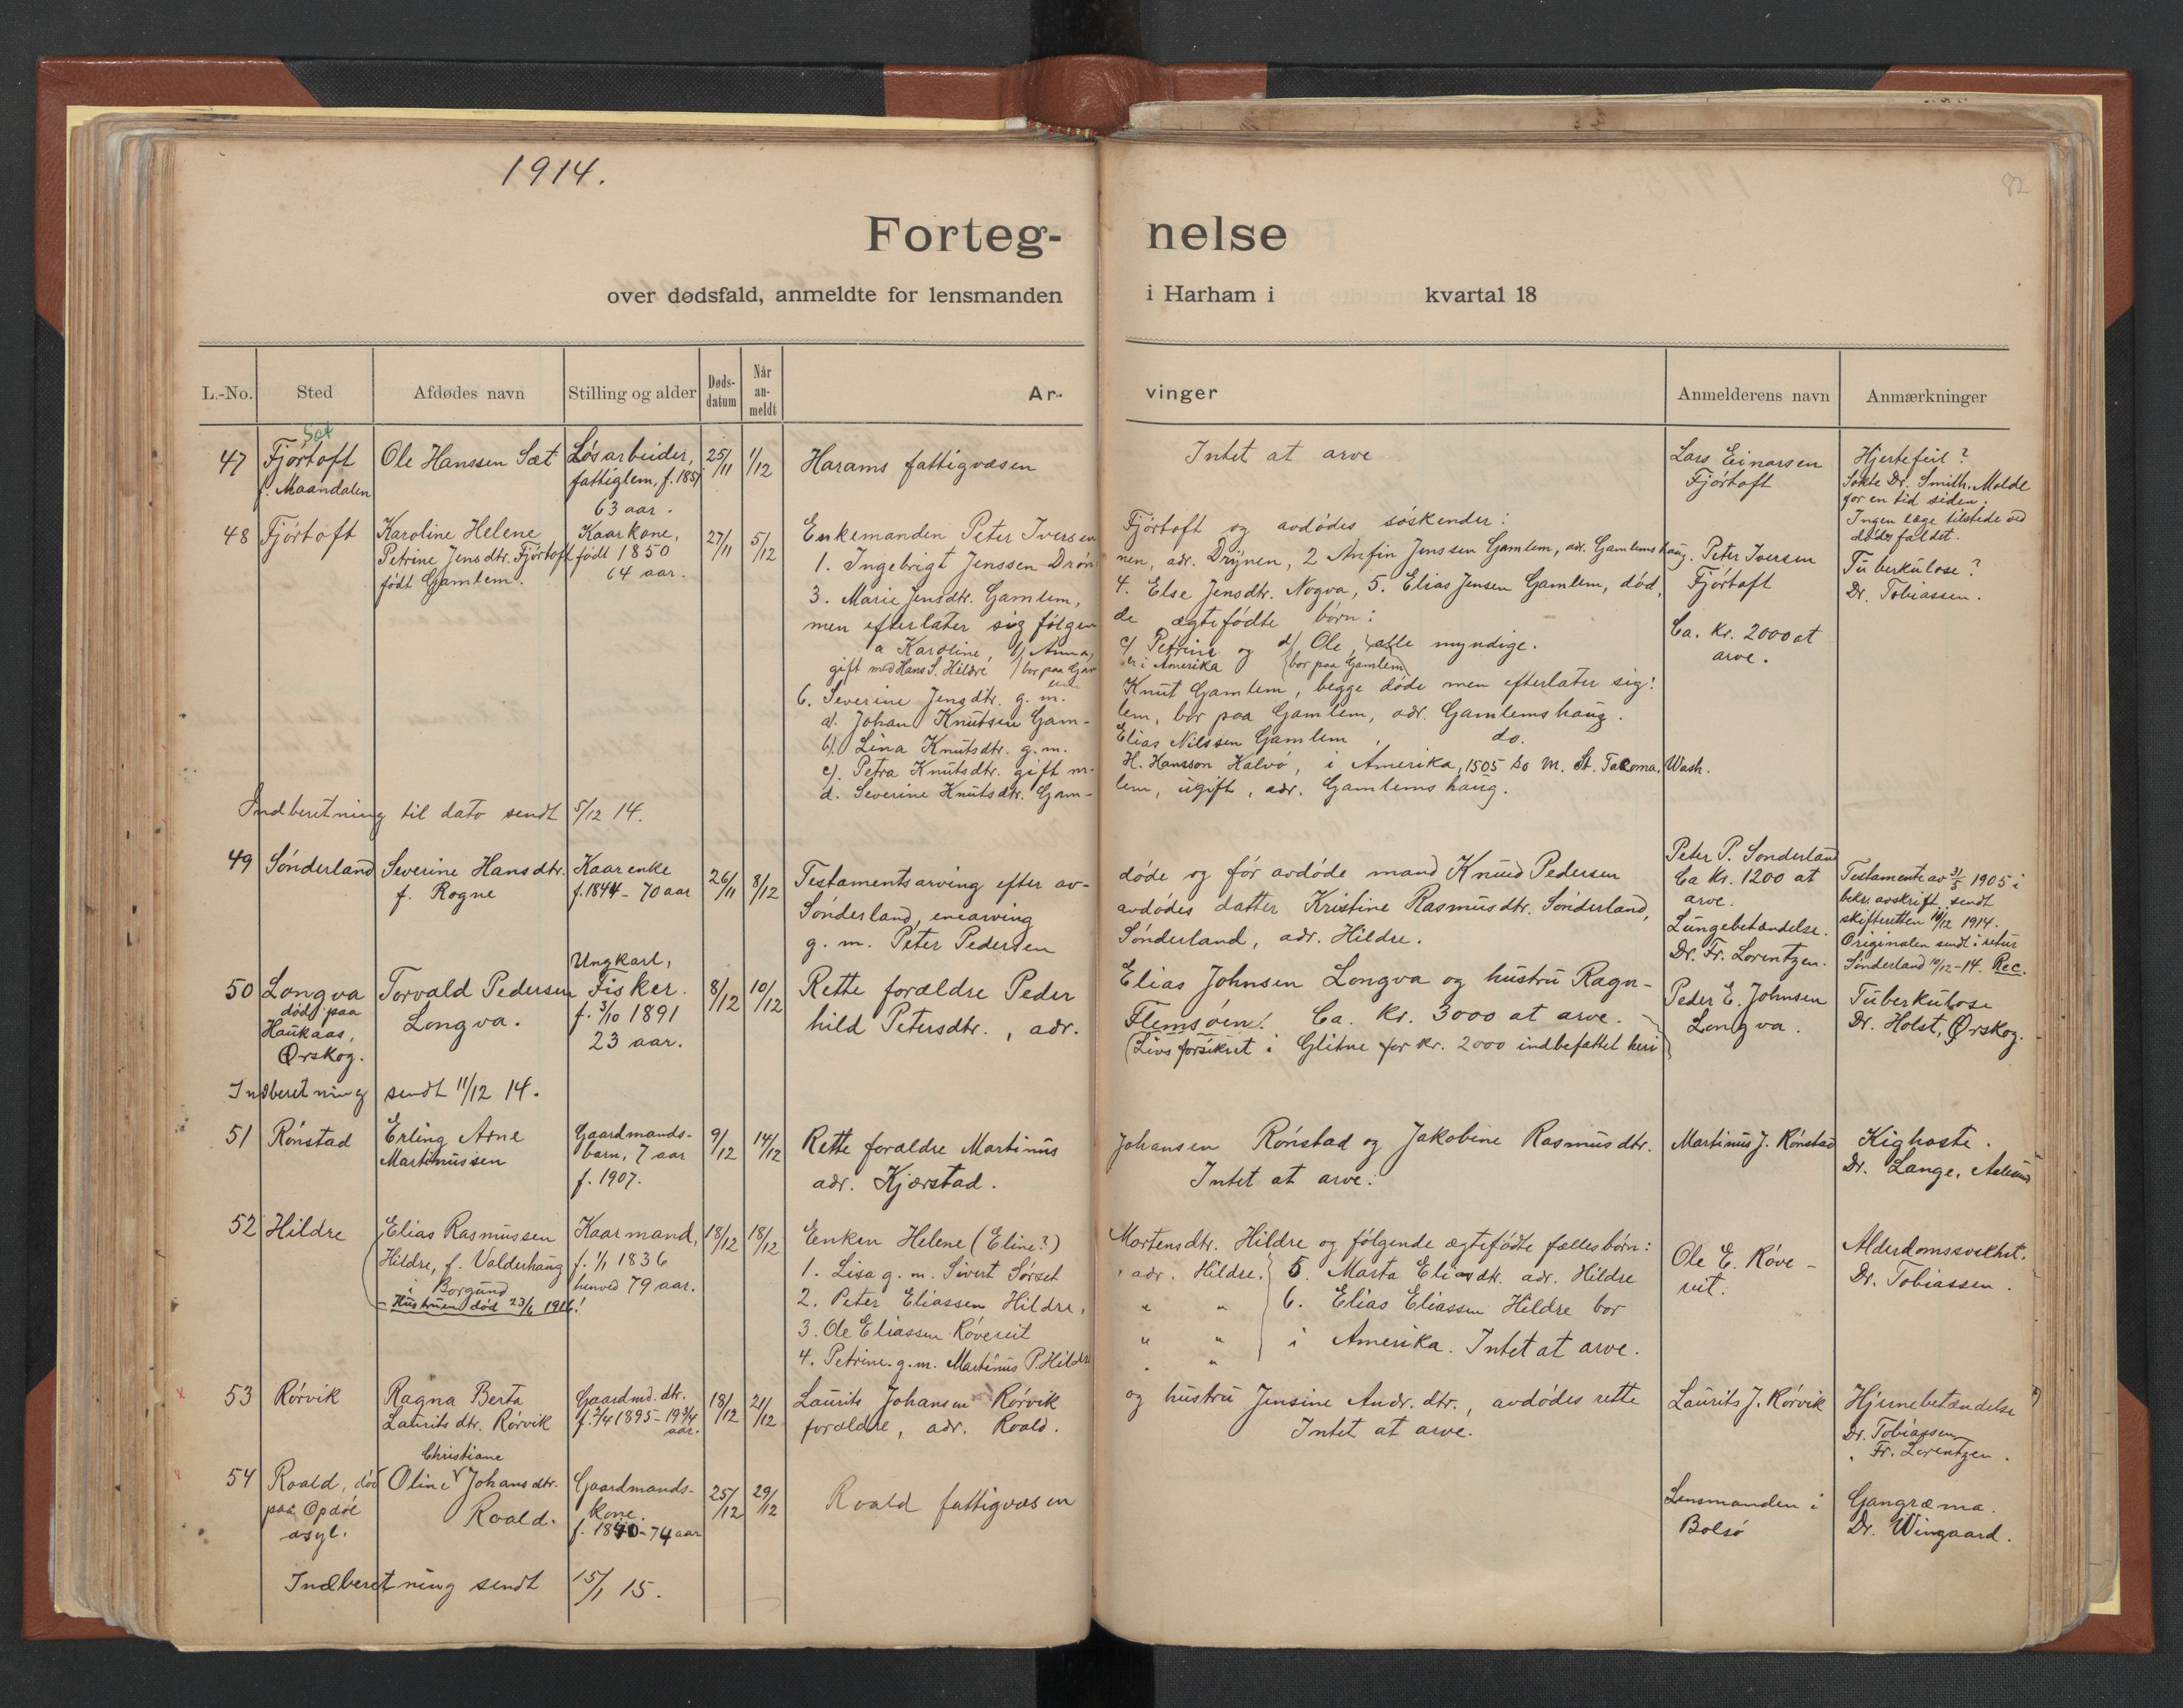 1914.
82
Forteg-nelse
over dødsfald, anmeldte for lensmanden i Harham i kvartal 18
L.-No. Sted Afdødes navn Stilling og alder Døds-datum Når an-meldt Ar-vinger Anmelderens navn Anmærkninger
47
Sæt
Fjørtoft
f. Maandalen
Ole Hanssen Sæt
Løsarbeider,
fattiglem, f. 1851
63 aar.
25/11
1/12
Harams fattigvæsen
Intet at arve
Lars Einarsen
Fjørtoft
Hjertefeil?
Søkte Dr. Smith. Molde
for en tid siden.
Ingen læge tilstede ved
dødsfaldet.
48
Fjørtoft
Karoline Helene
Petrine Jensdtr. Fjørtoft
født Gamlem.
Kaarkone,
født 1850
64 aar.
27/11
5/12
Enkemanden Peter Iversen Fjørtoft og avdødes søskender:
1. Ingebrigt Jenssen Drønnen, adr. Drynen, 2 Anfin Jenssen Gamlem, adr. Gamlemshaug.
3. Marie Jensdtr. Gamlem, 4. Else Jensdtr. Nogva, 5. Elias Jensen Gamlem, død,
men efterlater sig følgende ægtefødte børn:
a Karoline, b) Anna, c) Petrine og d) Ole, alle myndige.
gift med Hans S. Hildre bor paa Gam er i Amerika bor paa Gamlem
lem
6. Severine Jensdtr. g. m. Knut Gamlem, begge døde men efterlater sig:
a). Johan Knutsen Gam-lem, bor paa Gamlem, adr. Gamlemshaug.
b). Lina Knutsdtr. g. m. Elias Nilssen Gamlem, do.
c). Petra Knutsdtr. gift m. H. Hansson Kalvø, i Amerika, 1505 So M. St. Tacoma, Wash.
d. Severine Knutsdtr. Gam-lem, ugift, adr. Gamlemshaug.
Peter Iversen
Fjørtoft
Ca. Kr. 2000 at
arve.
Tuberkulose?
Dr. Tobiassen.
Indberetning til dato sendt 5/12 14.
49
Sønderland
Severine Hansdtr.
f. Rogne
Kaarenke
f. 1844 - 70 aar
26/11
8/12
Testamentsarving efter av-døde og før avdøde mand Knud Pedersen
Sønderland, enearving avdødes datter Kristine Rasmusdtr. Sønderland,
g. m. Peter Pedersen Sønderland, adr. Hildre.
Peter P. Sønderland
Ca Kr. 1200 at
arve.
Lungebetændelse.
Dr. Fr. Lorentzen.
Testamente av 31/5 1905 i
bekr. avskrift sendt
skifteretten 10/12 1914.
Originalen sendt i retur
Sønderland 10/12-14. Rec.
50
Longva
død paa
Haukaas,
Ørskog.
Torvald Pedersen
Longva.
Ungkarl,
Fisker.
f. 3/10 1891
23 aar.
8/12
10/12
Rette forældre Peder Elias Johnsen Longva og hustru Ragn-
hild Petersdtr., adr. Flemsøen. Ca. Kr. 3000 at arve.
(Livsforsikret i Glitne for kr. 2000 indbefattet heri)
Peder E. Johnsen
Longva.
Tuberkulose
Dr. Holst, Ørskog.
Indberetning sendt 11/12 14.
51
Rønstad
Erling Arne
Martinussen
Gaardmands-
barn, 7 aar
f. 1907.
9/12
14/12
Rette forældre Martinus Johansen Rønstad og Jakobine Rasmusdtr.
adr. Kjærstad. Intet at arve.
Martinus J. Rønstad
Kighoste.
Dr. Lange, Aalesund
52
Hildre
Elias Rasmussen
Hildre, f. Valderhaug
i Borgund
- Hustruen død 23/6 1916!
Kaarmand,
f. 1/1 1836
henved 79 aar.
18/12
18/12
Enken Helene (Eline?) Mortensdtr. Hildre og følgende ægtefødte fællesbørn:
1. Lisa g. m. Sivert Sørset adr. Hildre. 5. Marta Eliasdtr. adr. Hildre
2. Peter Eliassen Hildre, " " 6. Elias Eliassen Hildre bor
3. Ole Eliassen Røvereit " " i Amerika. Intet at arve.
4. Petrine g. m. Martinus P. Hildre " "
Ole E. Røve-
reit.
Alderdomssvækhet.
Dr. Tobiassen.
53
Rørvik
Ragna Berta
Lauritsdtr. Rørvik
Gaardmd. dtr.
f. 2/4 1895 - 19 3/4
aar.
18/12
21/12
Laurits Johansen Rørvik og hustru Jensine Andr. dtr., avdødes rette
forældre, adr. Roald. Intet at arve.
Laurits J. Rørvik
Hjernebetændelse
Dr. Tobiassen
" Fr. Lorentzen.
54
Roald, død
paa Opdøl
asyl.
Christiane
Oline Johansdtr.
Roald.
Gaardmands-
kone.
f. 1840 - 74 aar
25/12
29/12
Roald fattigvæsen
Lensmanden i
Bolsø
Gangræna.
Dr. Wingaard.
Indberetning sendt 15/1 15.